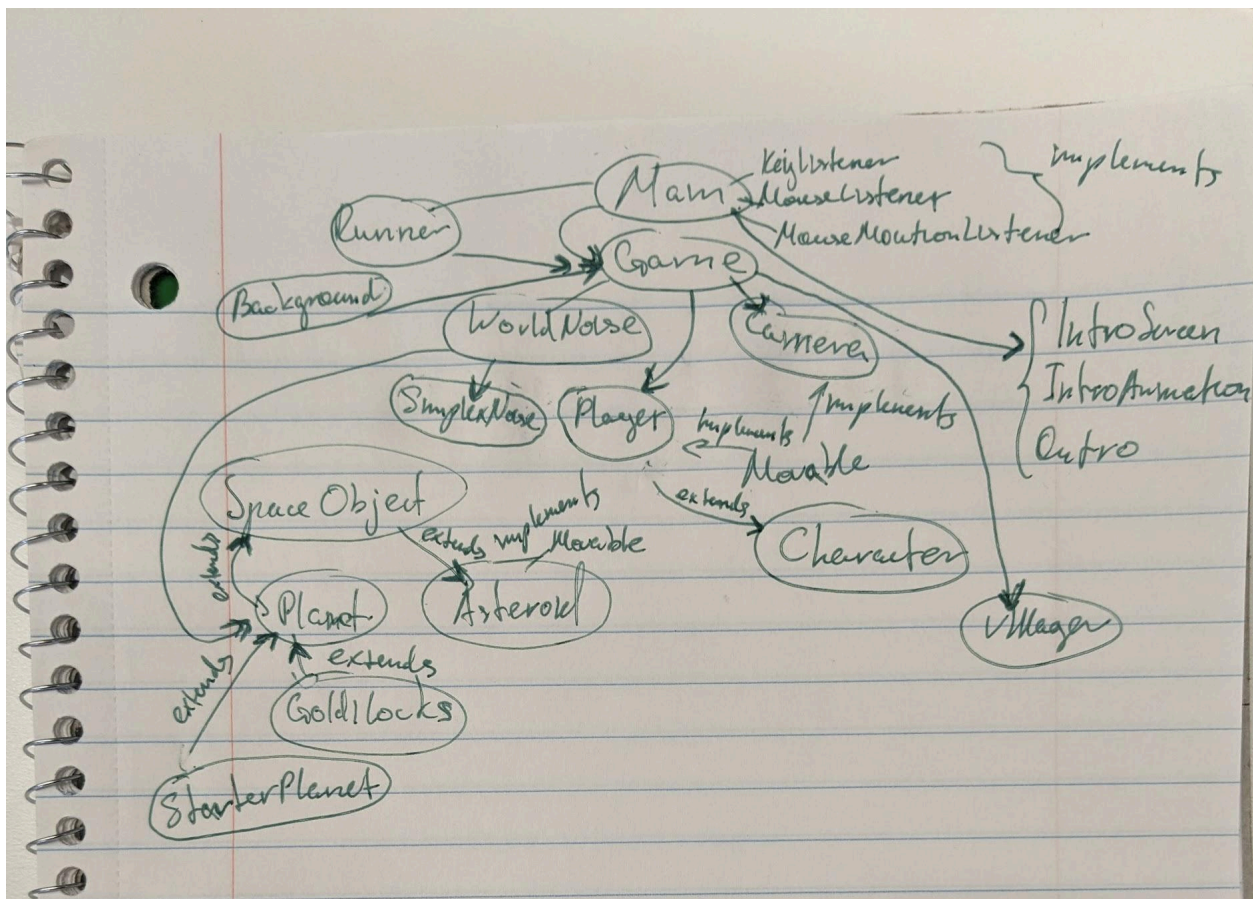 Main
KeyListener
MouseListener
MouseMoutionListener
implements
Runner
Game
Background
WorldNoise
Camera
IntroScreen
IntroAnimation
Outro
SimplexNoise
Player
implements
implements
Movable
Space Object
extends
Character
extends
implements
Movable
extends
Planet
Asteroid
Villager
extends
extends
Goldilocks
StarterPlanet